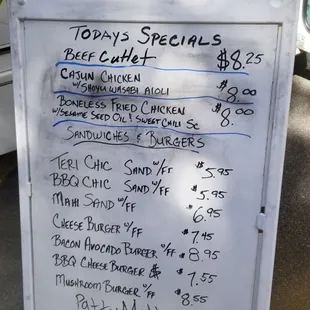 TODAYS SPECIALS
BEEF CUTLET $8.25
CAJUN CHICKEN
W/SHOYU WASABI AIOLI $8.00
BONELESS FRIED CHICKEN
W/SESAME SEED OIL! SWEET CHILI SC $8.00
SANDWICHES & BURGERS
TERI CHIC SAND W/FF $5.95
BBQ CHIC SAND W/FF $5.95
MAHI SAND W/FF $6.95
CHEESE BURGER W/FF $7.45
BACON AVOCADO BURGER W/FF $8.95
BBQ CHEESE BURGER $7.55
MUSHROOM BURGER W/FF $8.55
PATTY